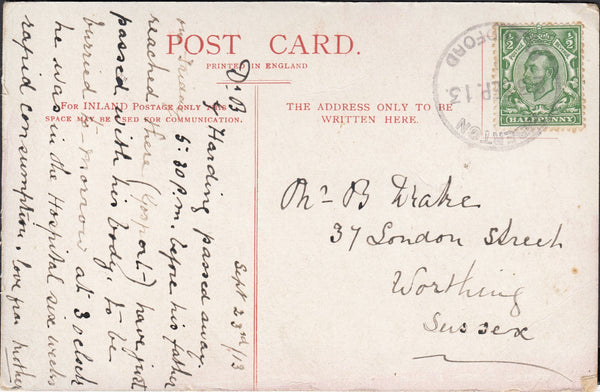 POST CARD.
PRINTED IN ENGLAND
FOR INLAND POSTAGE ONLY THIS
SPACE MAY BE USED FOR COMMUNICATION.
THE ADDRESS ONLY TO BE
WRITTEN HERE.
Sept 23rd/13
Dr B
Harding passed away
on 5.30 p.m. before his father
reached there (Gosport) have just
passed with his body. to be
burried to-morrow at 3 oclock
he was in the Hospital six weeks
rapid consumption. love from mother
Mr B Drake
37 London Street
Worthing
Sussex
1/2 1/2
HALFPENNY
FORD
EP. 13
ERTON